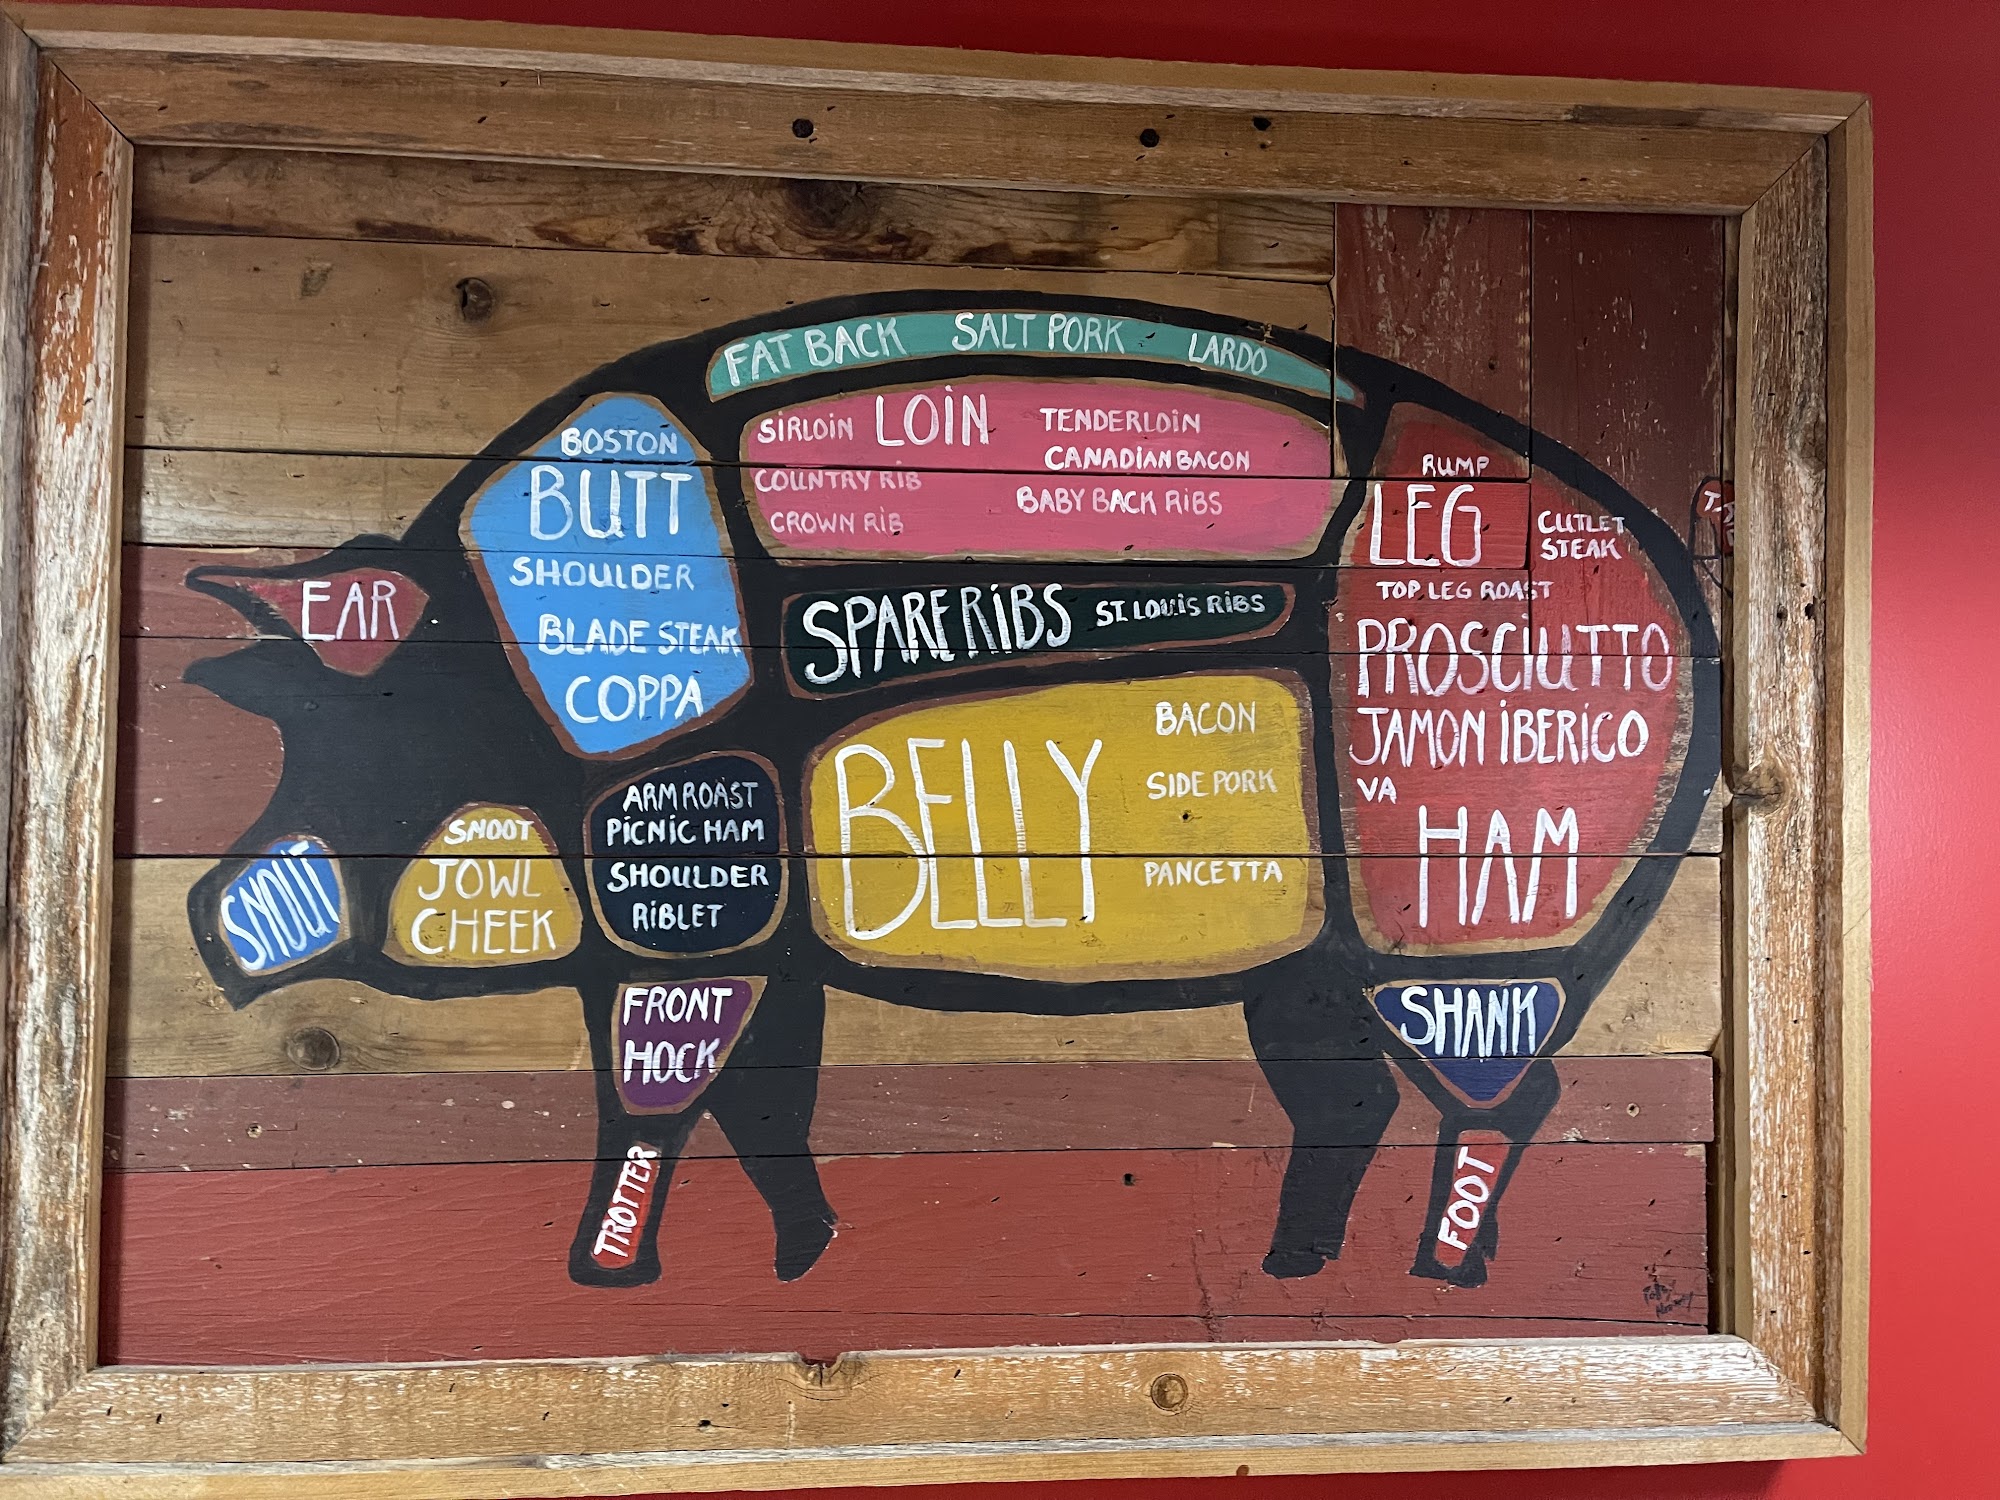 FAT BACK SALT PORK LARDO
SIRLOIN LOIN TENDERLOIN
CANADIAN BACON
COUNTRY RIB
BABY BACK RIBS
CROWN RIB
BOSTON
BUTT
SHOULDER
BLADE STEAK
COPPA
EAR
SPARE RIBS ST. LOUIS RIBS
RUMP
LEG
CUTLET
STEAK
TOP LEG ROAST
PROSCIUTTO
JAMON IBERICO
VA
HAM
BELLY
BACON
SIDE PORK
PANCETTA
ARM ROAST
PICNIC HAM
SHOULDER
RIBLET
SNOOT
JOWL
CHEEK
SNOUT
FRONT
HOCK
SHANK
TROTTER
FOOT